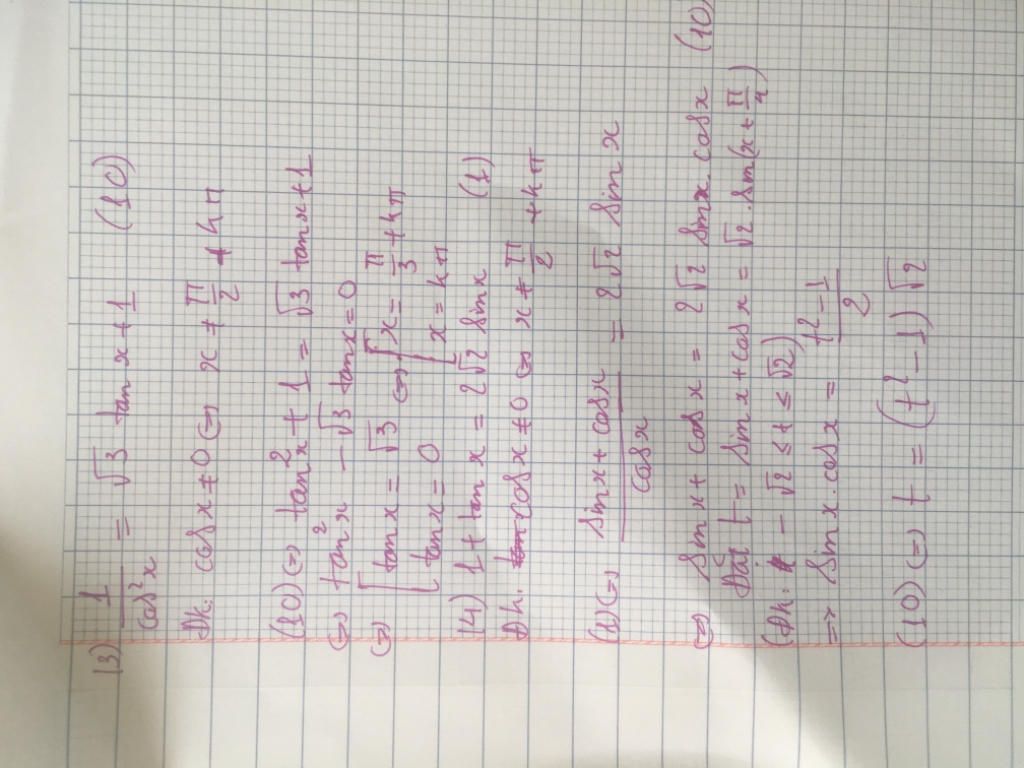 13) 1/cos²x = √3 tan x + 1 (10)
Đk: cosx ≠ 0 <=> x ≠ π/2 + kπ
(10) <=> tan²x + 1 = √3 tanx + 1
<=> tan²x - √3 tanx = 0
<=> [ tanx = √3 <=> [ x = π/3 + kπ
[ tanx = 0 [ x = kπ
14) 1 + tan x = 2√2 sinx (1)
Đk: cosx ≠ 0 <=> x ≠ π/2 + kπ
(1) <=> (sinx + cosx)/cosx = 2√2 sinx
<=> sinx + cosx = 2√2 sinx.cosx (10)
Đặt t = sinx + cosx = √2.sin(x + π/4)
(Đk: -√2 ≤ t ≤ √2)
=> sinx.cosx = (t² - 1)/2
(10) <=> t = (t² - 1)√2